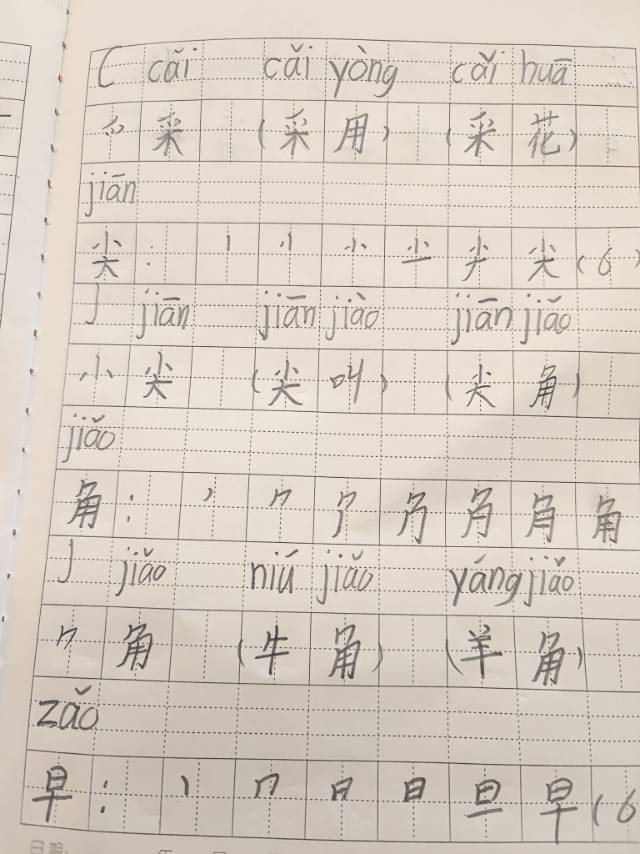 C cǎi cǎi yòng cǎi huā
爫 采 (采用) (采花)
jiān
尖: 丨 小 尖 (6)
J jiān jiān jiào jiān jiǎo
小 尖 (尖叫) (尖角)
jiǎo
角: 丿 ⺈ 角 角
J jiǎo niú jiǎo yáng jiǎo
⺈ 角 (牛角) (羊角)
zǎo
早: 丨 冂 日 日 旦 早 (6